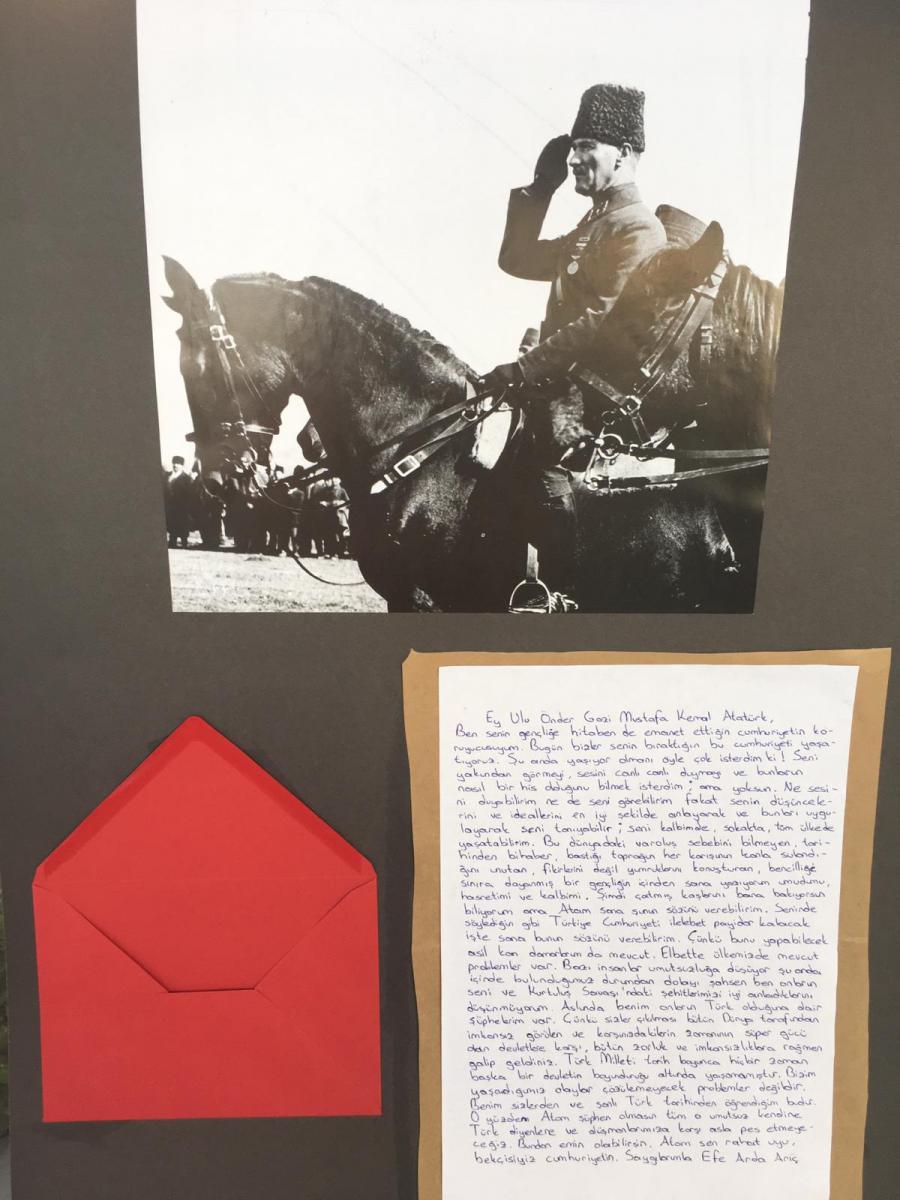 Ey Ulu Önder Gazi Mustafa Kemal Atatürk,
Ben senin gençliğe hitaben de emanet ettiğin cumhuriyetin ko-
ruyucusuyum. Bugün bizler senin bıraktığın bu cumhuriyeti yaşa-
tıyoruz. Şu anda yaşıyor olmanı öyle çok isterdim ki! Seni
yakından görmeyi, sesini canlı canlı duymayı ve bunların
nasıl bir his olduğunu bilmek isterdim; ama yoksun. Ne sesi-
ni duyabilirim ne de seni görebilirim fakat senin düşüncele-
rini ve ideallerini en iyi şekilde anlayarak ve bunları uygu-
layarak seni tanıyabilir; seni kalbimde, sokakta, tüm ülkede
yaşatabilirim. Bu dünyadaki varoluş sebebini bilmeyen, tari-
hinden bihaber, bastığı toprağın her karışının kanla sulandı-
ğını unutan, fikirlerini değil yumruklarını konuşturan, bencilliğe
sınıra dayanmış bir gençliğin içinden sana yazıyorum umudumu,
hasretimi ve kalbimi. Şimdi çatmış kaşlarını bana bakıyorsun
biliyorum ama Atam sana şunun sözünü verebilirim. Seninde
söylediğin gibi Türkiye Cumhuriyeti ilelebet payidar kalacak
işte sana bunun sözünü verebilirim. Çünkü bunu yapabilecek
asil kan damarlarım da mevcut. Elbette ülkemizde mevcut
problemler var. Bazı insanlar umutsuzluğa düşüyor şu anda
içinde bulunduğumuz durumdan dolayı şahsen ben onların
seni ve Kurtuluş Savaşı'ndaki şehitlerimizi iyi anladıklarını
düşünmüyorum. Aslında benim onların Türk olduğuna dair
şüphelerim var. Çünkü sizler çıkılması bütün Dünya tarafından
imkansız görülen ve karşınızdakilerin zamanının süper gücü
olan devletlere karşı, bütün zorluk ve imkansızlıklara rağmen
galip geldiniz. Türk Milleti tarih boyunca hiçbir zaman
başka bir devletin boyunduruğu altında yaşamamıştır. Bizim
yaşadığımız olaylar çözülemeyecek problemler değildir.
Benim sizlerden ve şanlı Türk tarihinden öğrendiğim budur.
O yüzden Atam şüphen olmasın tüm o umutsuz kendine
Türk diyenlere ve düşmanlarımıza karşı asla pes etmeye-
ceğiz. Bundan emin olabilirsin. Atam sen rahat uyu,
bekçisiyiz cumhuriyetin. Saygılarımla Efe Arda Arıç